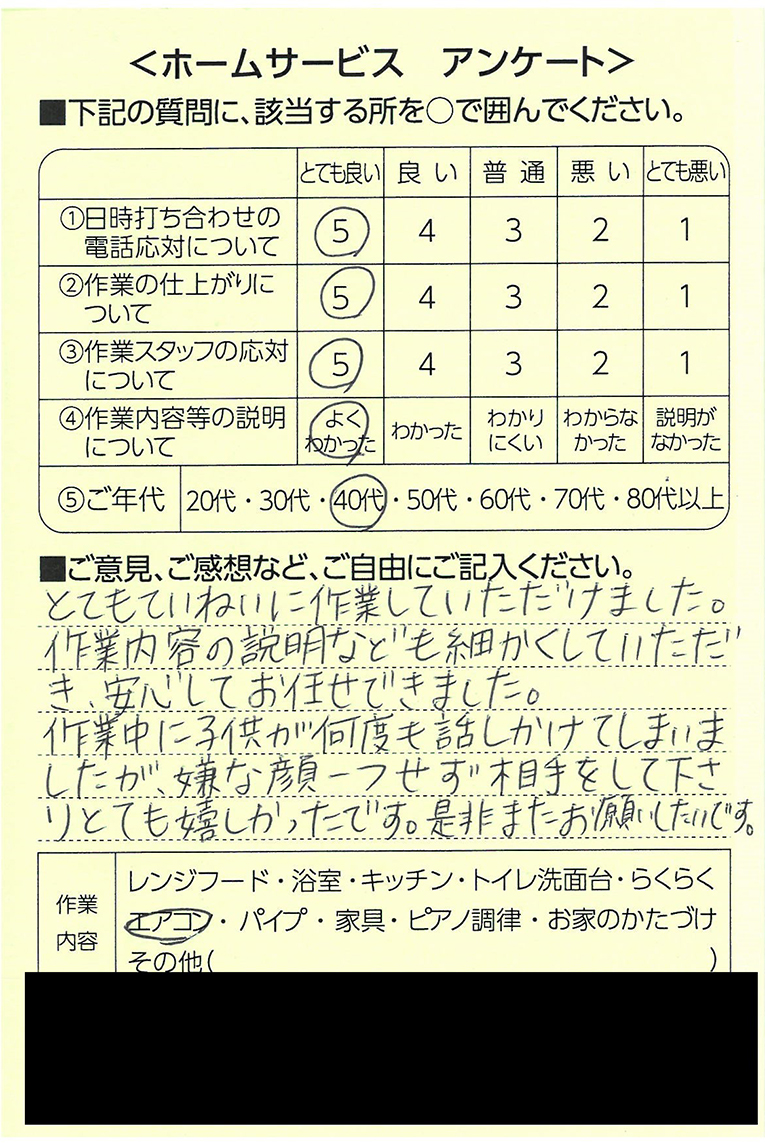 <ホームサービス　アンケート>
■下記の質問に、該当する所を○で囲んでください。
とても良い 良い 普通 悪い とても悪い
①日時打ち合わせの
電話応対について 5 4 3 2 1
②作業の仕上がりに
ついて 5 4 3 2 1
③作業スタッフの応対
について 5 4 3 2 1
④作業内容等の説明
について よく
わかった わかった わかり
にくい わからな
かった 説明が
なかった
⑤ご年代 20代・30代・40代・50代・60代・70代・80代以上
■ご意見、ご感想など、ご自由にご記入ください。
とてもていねいに作業していただけました。
作業内容の説明なども細かくしていただ
き、安心してお任せできました。
作業中に子供が何度も話しかけてしまいま
したが、嫌な顔一つせず相手をして下さ
りとても嬉しかったです。是非またお願いしたいです。
作業
内容
レンジフード・浴室・キッチン・トイレ洗面台・らくらく
エアコン・パイプ・家具・ピアノ調律・お家のかたづけ
その他(　)